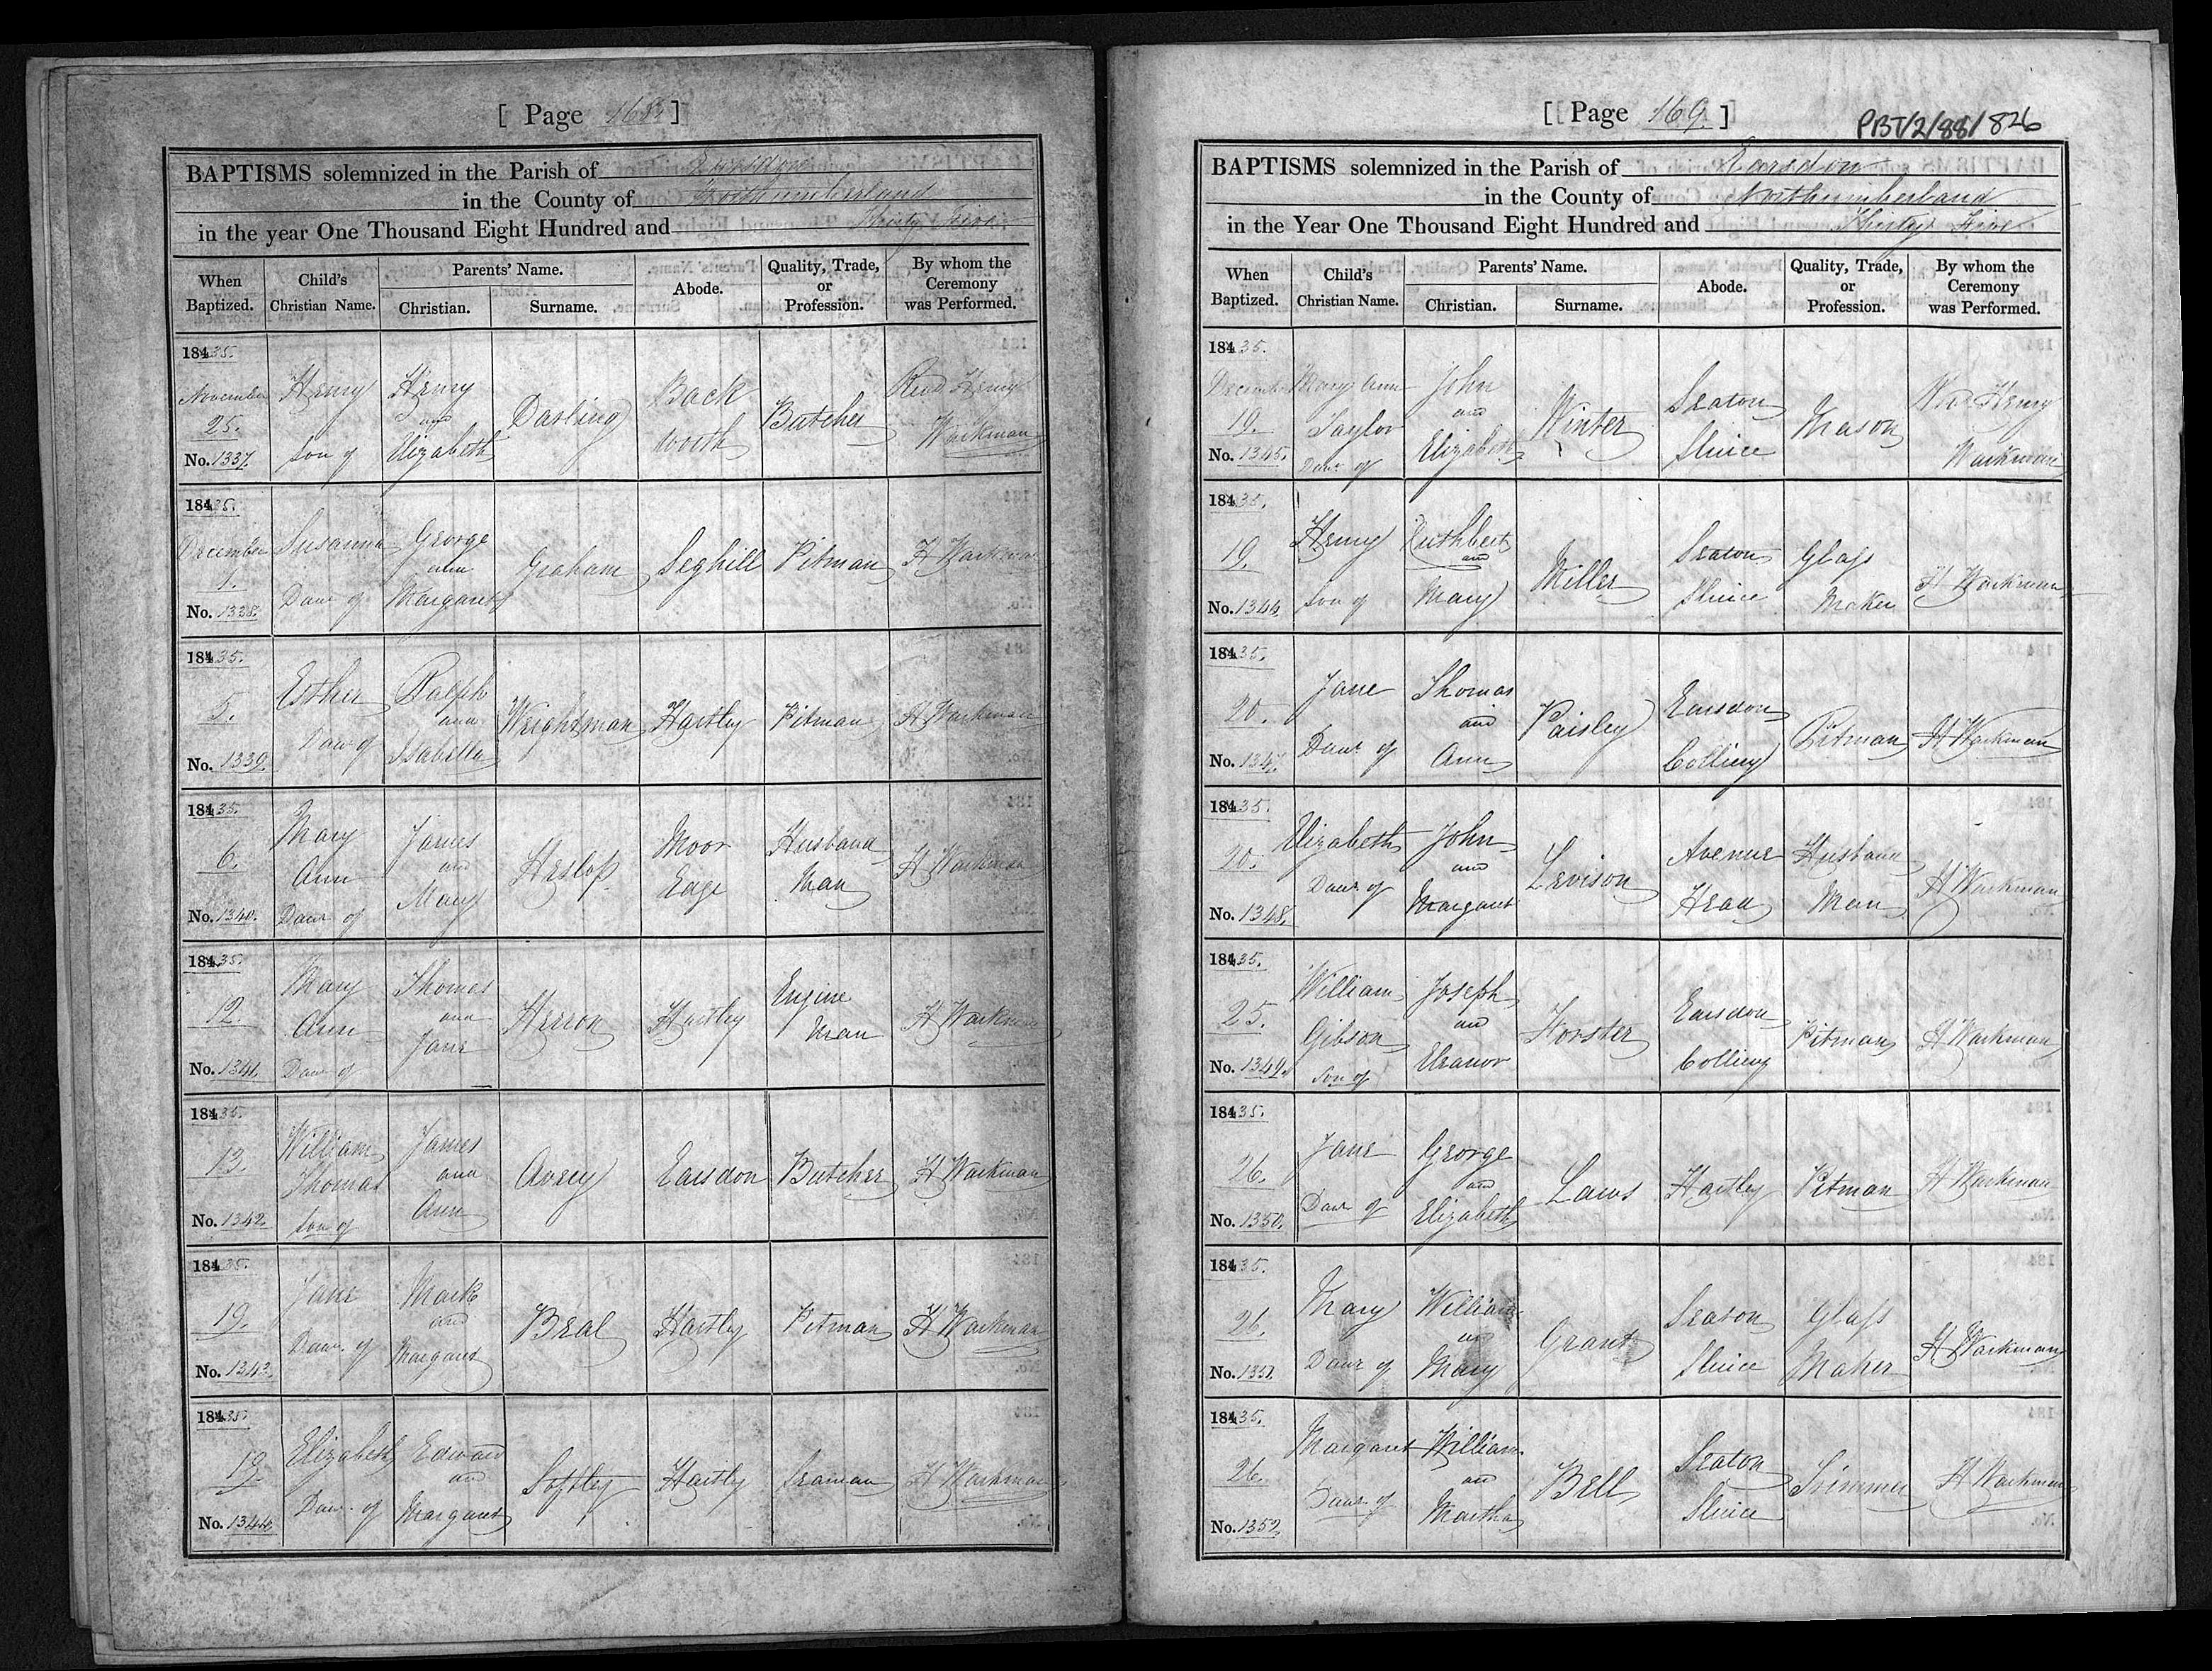 [ Page 168 ]
BAPTISMS solemnized in the Parish of Earsdon
in the County of Northumberland
in the year One Thousand Eight Hundred and Thirty Five
When Baptized.
Child's Christian Name.
Parents' Name.
Christian.
Surname.
Abode.
Quality, Trade, or Profession.
By whom the Ceremony was Performed.
18435.
November 25.
No. 1337.
Henry
Son of
Henry
and
Elizabeth
Darling
Back
worth
Butcher
Revd Henry
Warkman
18435.
December 1.
No. 1338.
Susanna
Daur of
George
and
Margaret
Graham
Seghill
Pitman
H Warkman
18435.
5.
No. 1339.
Esther
Daur of
Ralph
and
Isabella
Weightman
Hartley
Pitman
H Warkman
18435.
6.
No. 1340.
Mary
Ann
Daur of
James
and
Mary
Heslop
Moor
Edge
Husband
Man
H Warkman
18435.
12.
No. 1341.
Mary
Ann
Daur of
Thomas
and
Jane
Herron
Hartley
Engine
Man
H Warkman
18435.
13.
No. 1342.
William
Thomas
Son of
James
and
Ann
Avrey
Earsdon
Butcher
H Warkman
18435.
19.
No. 1343.
Jane
Daur. of
Mark
and
Margaret
Beal
Hartley
Pitman
H Warkman
18435.
19.
No. 1344.
Elizabeth
Daur. of
Edward
and
Margaret
Softley
Hartley
Seaman
H Warkman
[ Page 169. ]
PBT/2/88/826
BAPTISMS solemnized in the Parish of Earsdon
in the County of Northumberland
in the Year One Thousand Eight Hundred and Thirty Five
When Baptized.
Child's Christian Name.
Parents' Name.
Christian.
Surname.
Abode.
Quality, Trade, or Profession.
By whom the Ceremony was Performed.
18435.
December 19.
No. 1345.
Mary Ann
Taylor
Daur of
John
and
Elizabeth
Winter
Seaton
Sluice
Mason
Henry
Warkman
18435.
19.
No. 1344
Henry
Son of
Cuthbert
and
Mary
Miller
Seaton
Sluice
Glass
Maker
H Warkman
18435.
20.
No. 1347.
Jane
Daur of
Thomas
and
Ann
Paisley
Earsdon
Colliery
Pitman
H Warkman
18435.
20.
No. 1348.
Elizabeth
Daur of
John
and
Margaret
Levison
Avenue
Head
Husband
Man
H Warkman
18435.
25.
No. 1349.
William
Gibson
Son of
Joseph
and
Eleanor
Forster
Earsdon
Colliery
Pitman
H Warkman
18435.
26.
No. 1350.
Jane
Daur of
George
and
Elizabeth
Laws
Hartley
Pitman
H Warkman
18435.
26.
No. 1351.
Mary
Daur of
William
and
Mary
Grant
Seaton
Sluice
Glass
Maker
H Warkman
18435.
26.
No. 1352
Margaret
Daur of
William
and
Martha
Bell
Seaton
Sluice
Trimmer
H Warkman